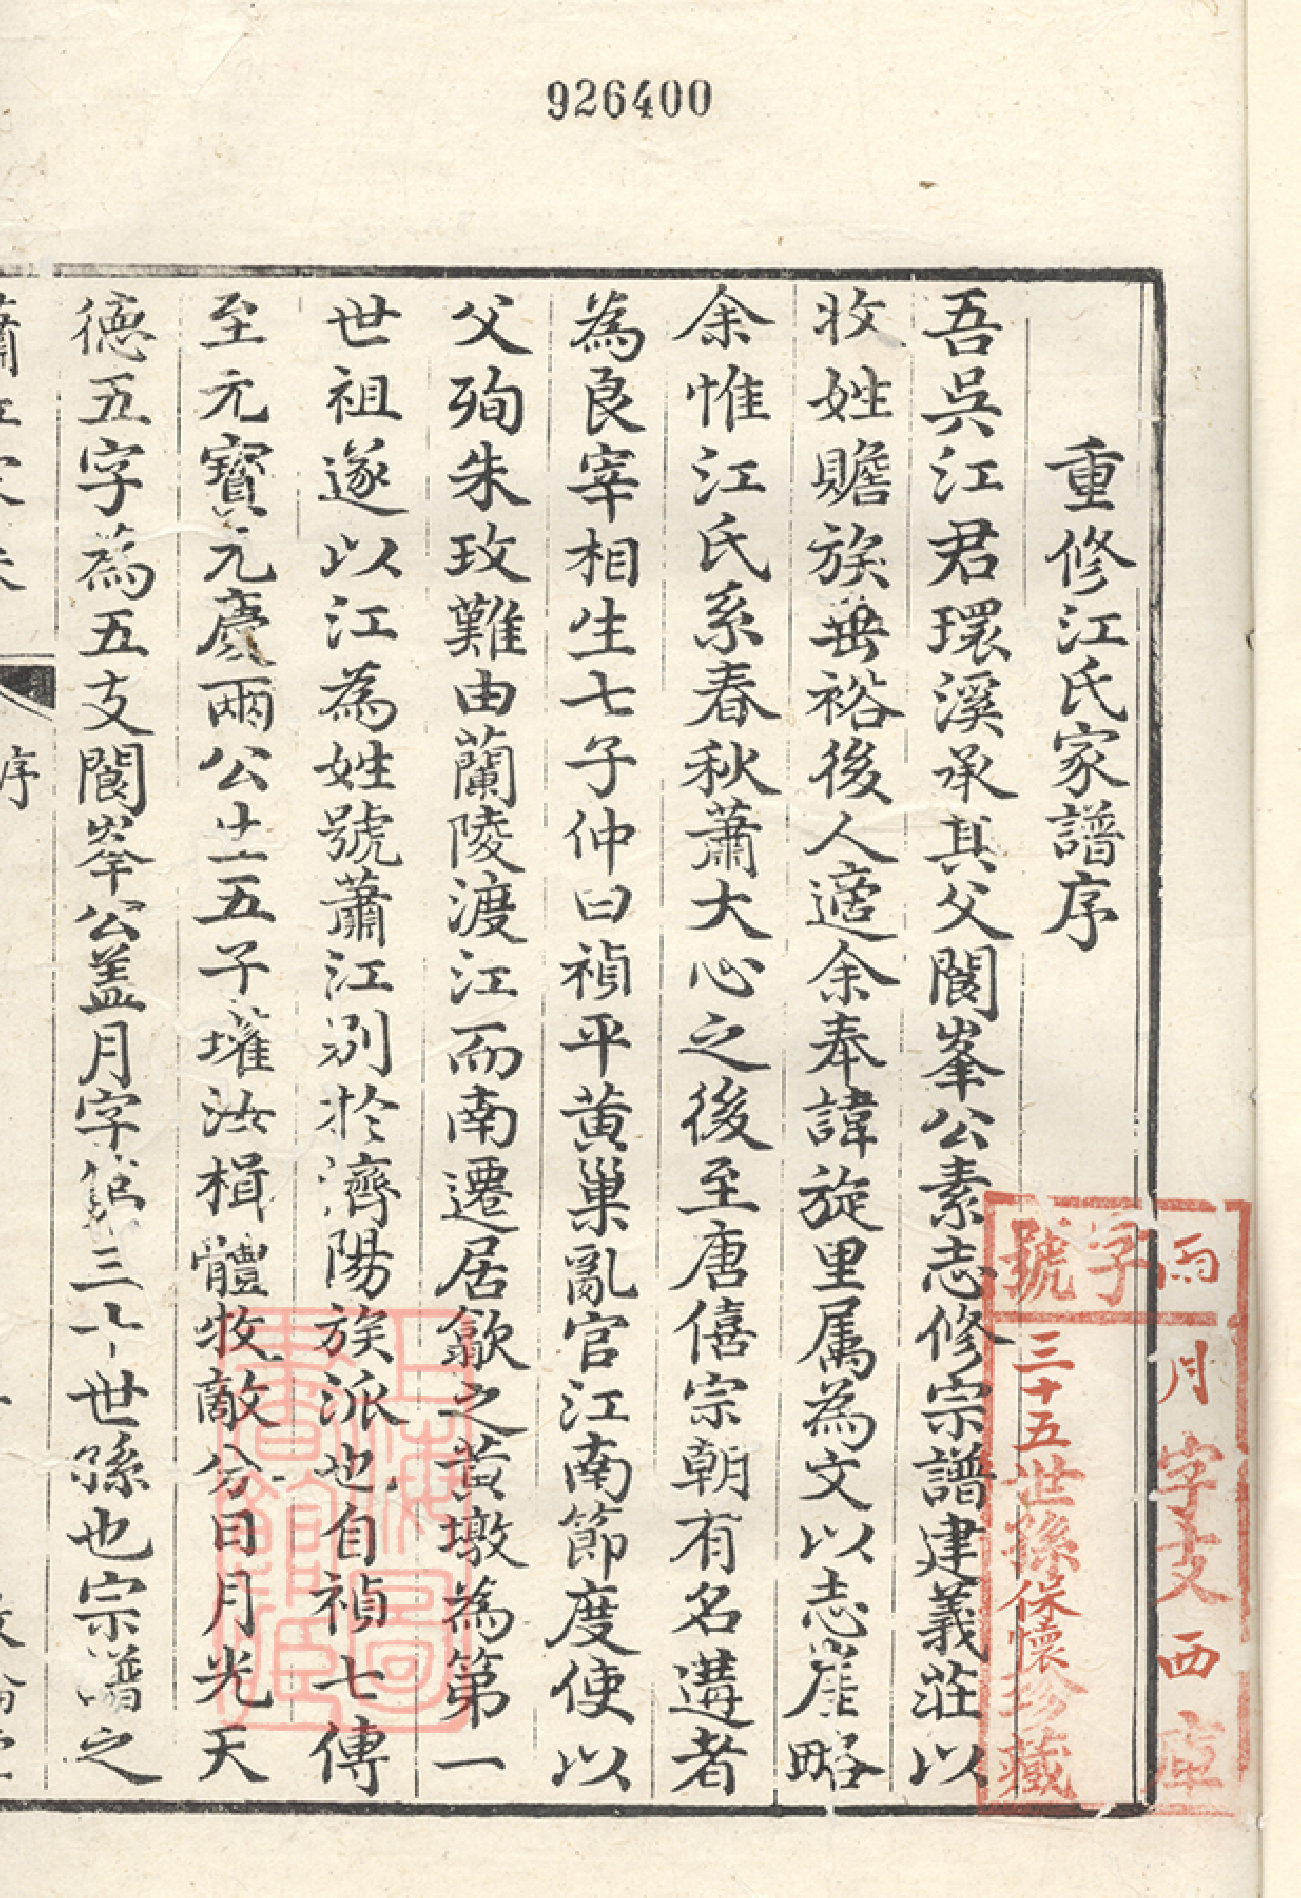 926400
重修江氏家譜序
吾吳江君環溪承其父閬峯公素志修宗譜建義莊以
收姓贍族垂裕後人適余奉諱旋里属為文以志崖略
余惟江氏系春秋蕭大心之後至唐僖宗朝有名遘者
為良宰相生七子仲曰禎平黃巢亂官江南節度使以
父殉朱玫難由蘭陵渡江而南遷居歙之黃墩為第一
世祖遂以江為姓號蕭江別於濟陽族派也自禎七傳
至元寶元慶兩公生五子㩲汝楫體牧敵分日月光天
德五字為五支閬峯公蓋月字第三十世孫也宗譜之
序
雨字號
月字支西庫
三十五世孫保懷珍藏
上海圖書館藏